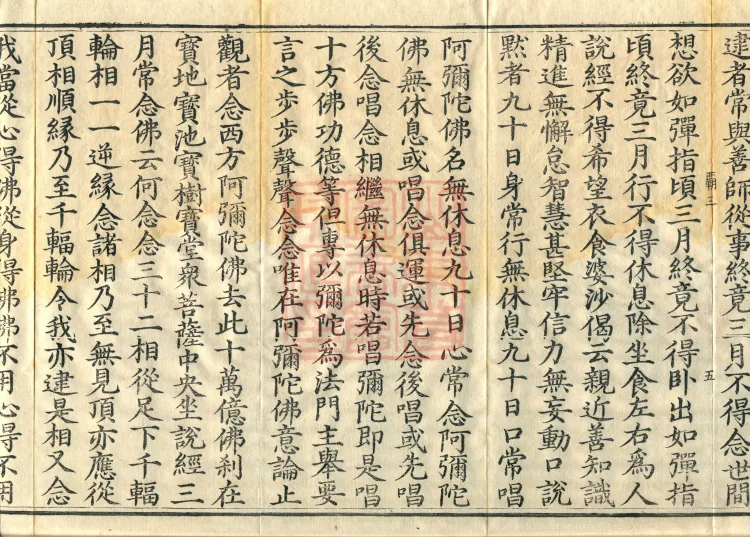 逮者常與善師從事終竟三月不得念世間
想欲如彈指頃三月終竟不得卧出如彈指
頃終竟三月行不得休息除坐食左右爲人
說經不得希望衣食婆沙偈云親近善知識
精進無懈怠智慧甚堅牢信力無妄動口說
黙者九十日身常行無休息九十日口常唱
阿彌陀佛名無休息九十日心常念阿彌陀
佛無休息或唱念俱運或先念後唱或先唱
後念唱念相繼無休息時若唱彌陀即是唱
十方佛功德等但專以彌陀爲法門主舉要
言之步步聲聲念念唯在阿彌陀佛意論止
觀者念西方阿彌陀佛去此十萬億佛刹在
寳地寳池寳樹寳堂衆菩薩中央坐說經三
月常念佛云何念念三十二相從足下千輻
輪相一一逆緣念諸相乃至無見頂亦應從
頂相順緣乃至千輻輪令我亦逮是相又念
我當從心得佛從身得佛佛不用心得不用
覇三
五